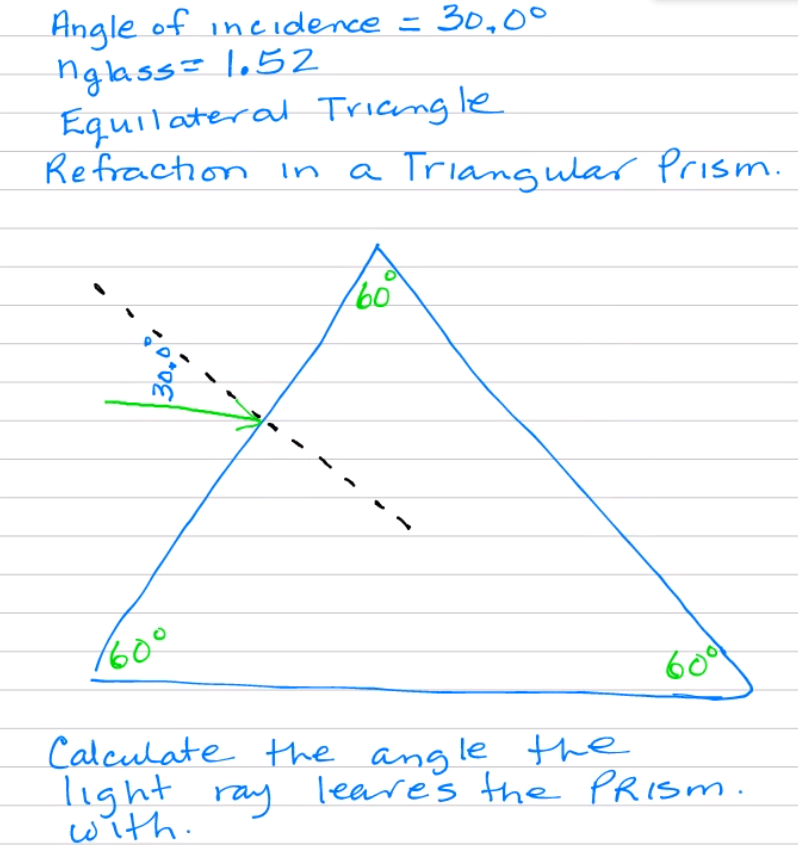 Angle of incidence = 30.0°
nglass = 1.52
Equilateral Triangle
Refraction in a Triangular Prism.
60°
30.0°
60°
60°
Calculate the angle the
light ray leaves the PRISM.
with.